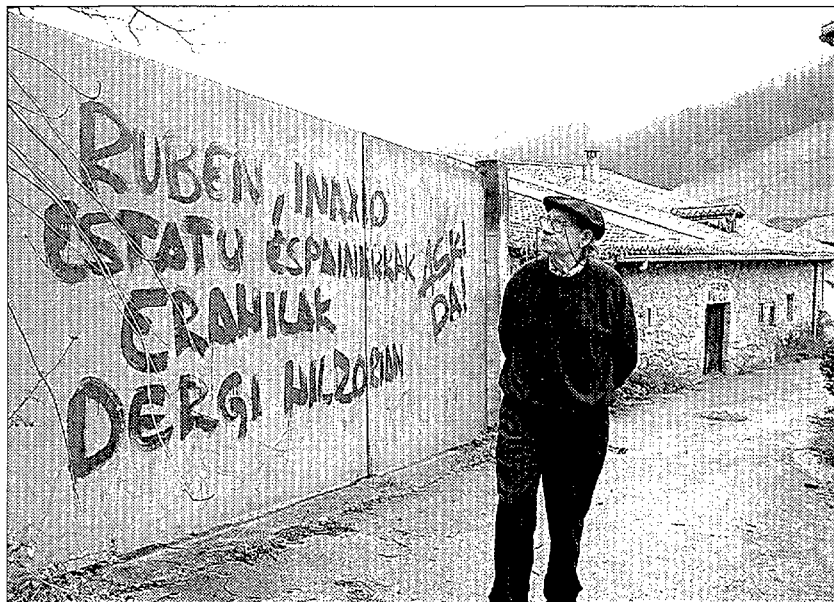 RUBEN, INAXIO
ESTATU ESPAINIARRAK
ERAHILAK
DERGI HILZORIAN
ASKI
DA!